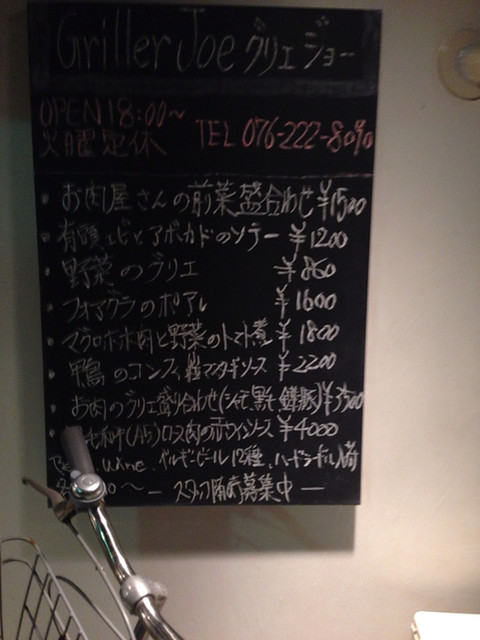 Griller Joe グリエ ジョー
OPEN 18:00~
火曜定休 TEL 076-222-8010
お肉屋さんの前菜盛合わせ ¥1500
有頭エビとアボカドのソテー ¥1200
野菜のグリエ ¥860
フォアグラのポアレ ¥1600
マグロホホ肉と野菜のトマト煮 ¥1800
鴨のコンフィ 粒マスタードソース ¥2200
お肉のグリエ盛り合わせ ¥3500
(A5)ロース肉の赤ワインソース ¥4000
Wine、ベルギービール12種、
— スタッフ随時募集中 —